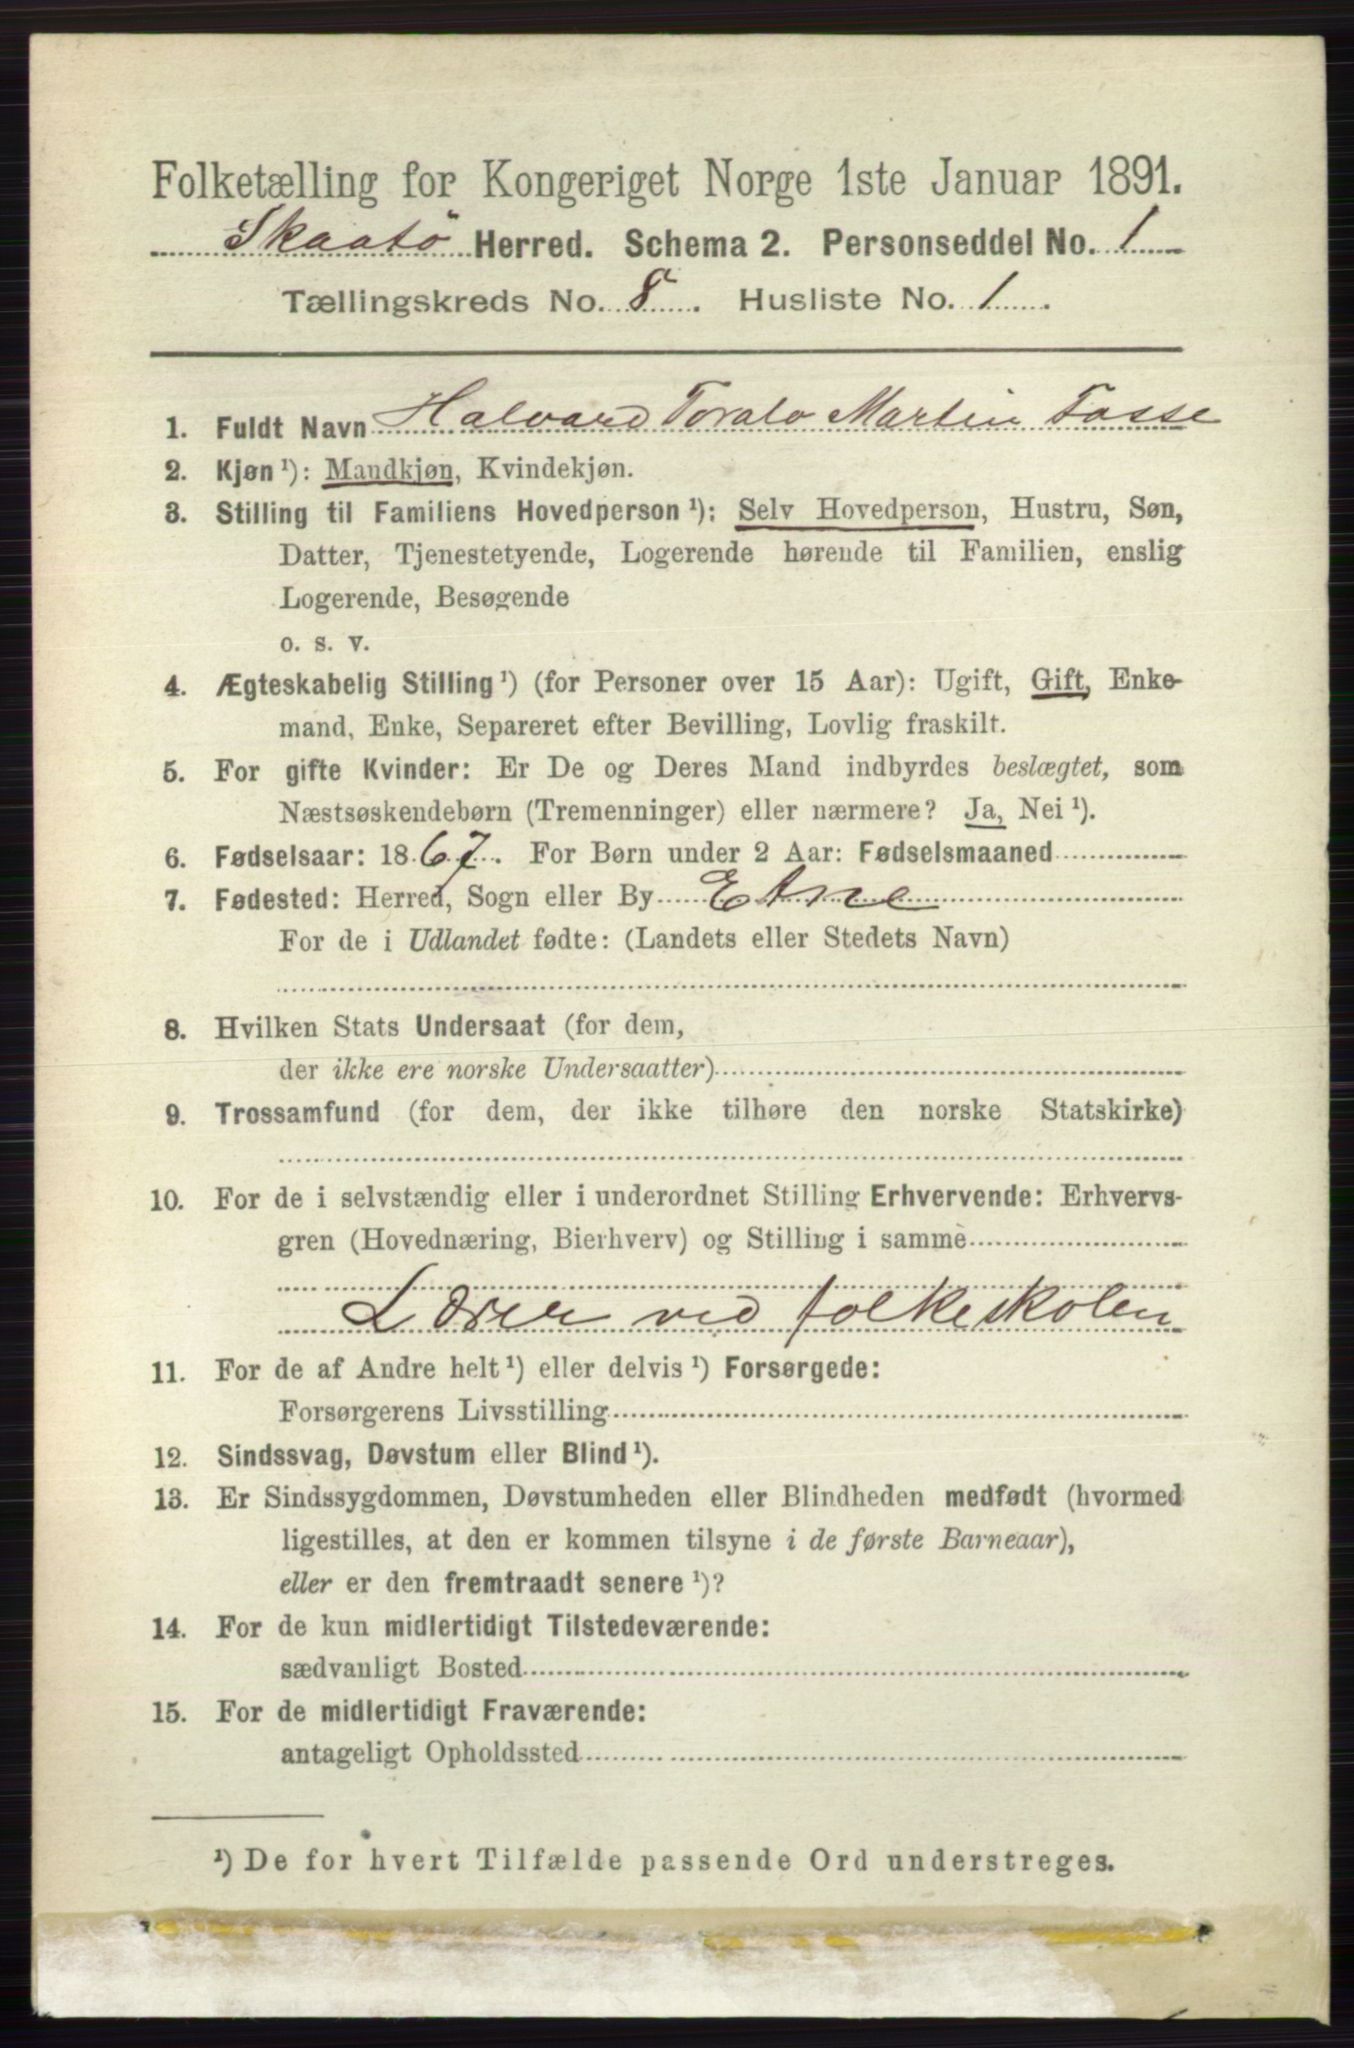 Folketælling for Kongeriget Norge 1ste Januar 1891.
Skaatö Herred. Schema 2. Personseddel No. 1
Tællingskreds No. 8. Husliste No. 1.
1. Fuldt Navn Halvard Toralv Martin Tosse
2. Kjøn ¹): Mandkjøn, Kvindekjøn.
3. Stilling til Familiens Hovedperson ¹): Selv Hovedperson, Hustru, Søn,
Datter, Tjenestetyende, Logerende hørende til Familien, enslig
Logerende, Besøgende
o. s. v.
4. Ægteskabelig Stilling ¹) (for Personer over 15 Aar): Ugift, Gift, Enke-
mand, Enke, Separeret efter Bevilling, Lovlig fraskilt.
5. For gifte Kvinder: Er De og Deres Mand indbyrdes beslægtet, som
Næstsøskendebørn (Tremenninger) eller nærmere? Ja, Nei ¹).
6. Fødselsaar: 1867. For Børn under 2 Aar: Fødselsmaaned
7. Fødested: Herred, Sogn eller By Etne
For de i Udlandet fødte: (Landets eller Stedets Navn)
8. Hvilken Stats Undersaat (for dem,
der ikke ere norske Undersaatter)
9. Trossamfund (for dem, der ikke tilhøre den norske Statskirke)
10. For de i selvstændig eller i underordnet Stilling Erhvervende: Erhvervs-
gren (Hovednæring, Bierhverv) og Stilling i samme
Lærer ved folkeskolen
11. For de af Andre helt ¹) eller delvis ¹) Forsørgede:
Forsørgerens Livsstilling
12. Sindssvag, Døvstum eller Blind ¹).
13. Er Sindssygdommen, Døvstumheden eller Blindheden medfødt (hvormed
ligestilles, at den er kommen tilsyne i de første Barneaar),
eller er den fremtraadt senere ¹)?
14. For de kun midlertidigt Tilstedeværende:
sædvanligt Bosted
15. For de midlertidigt Fraværende:
antageligt Opholdssted
¹) De for hvert Tilfælde passende Ord understreges.